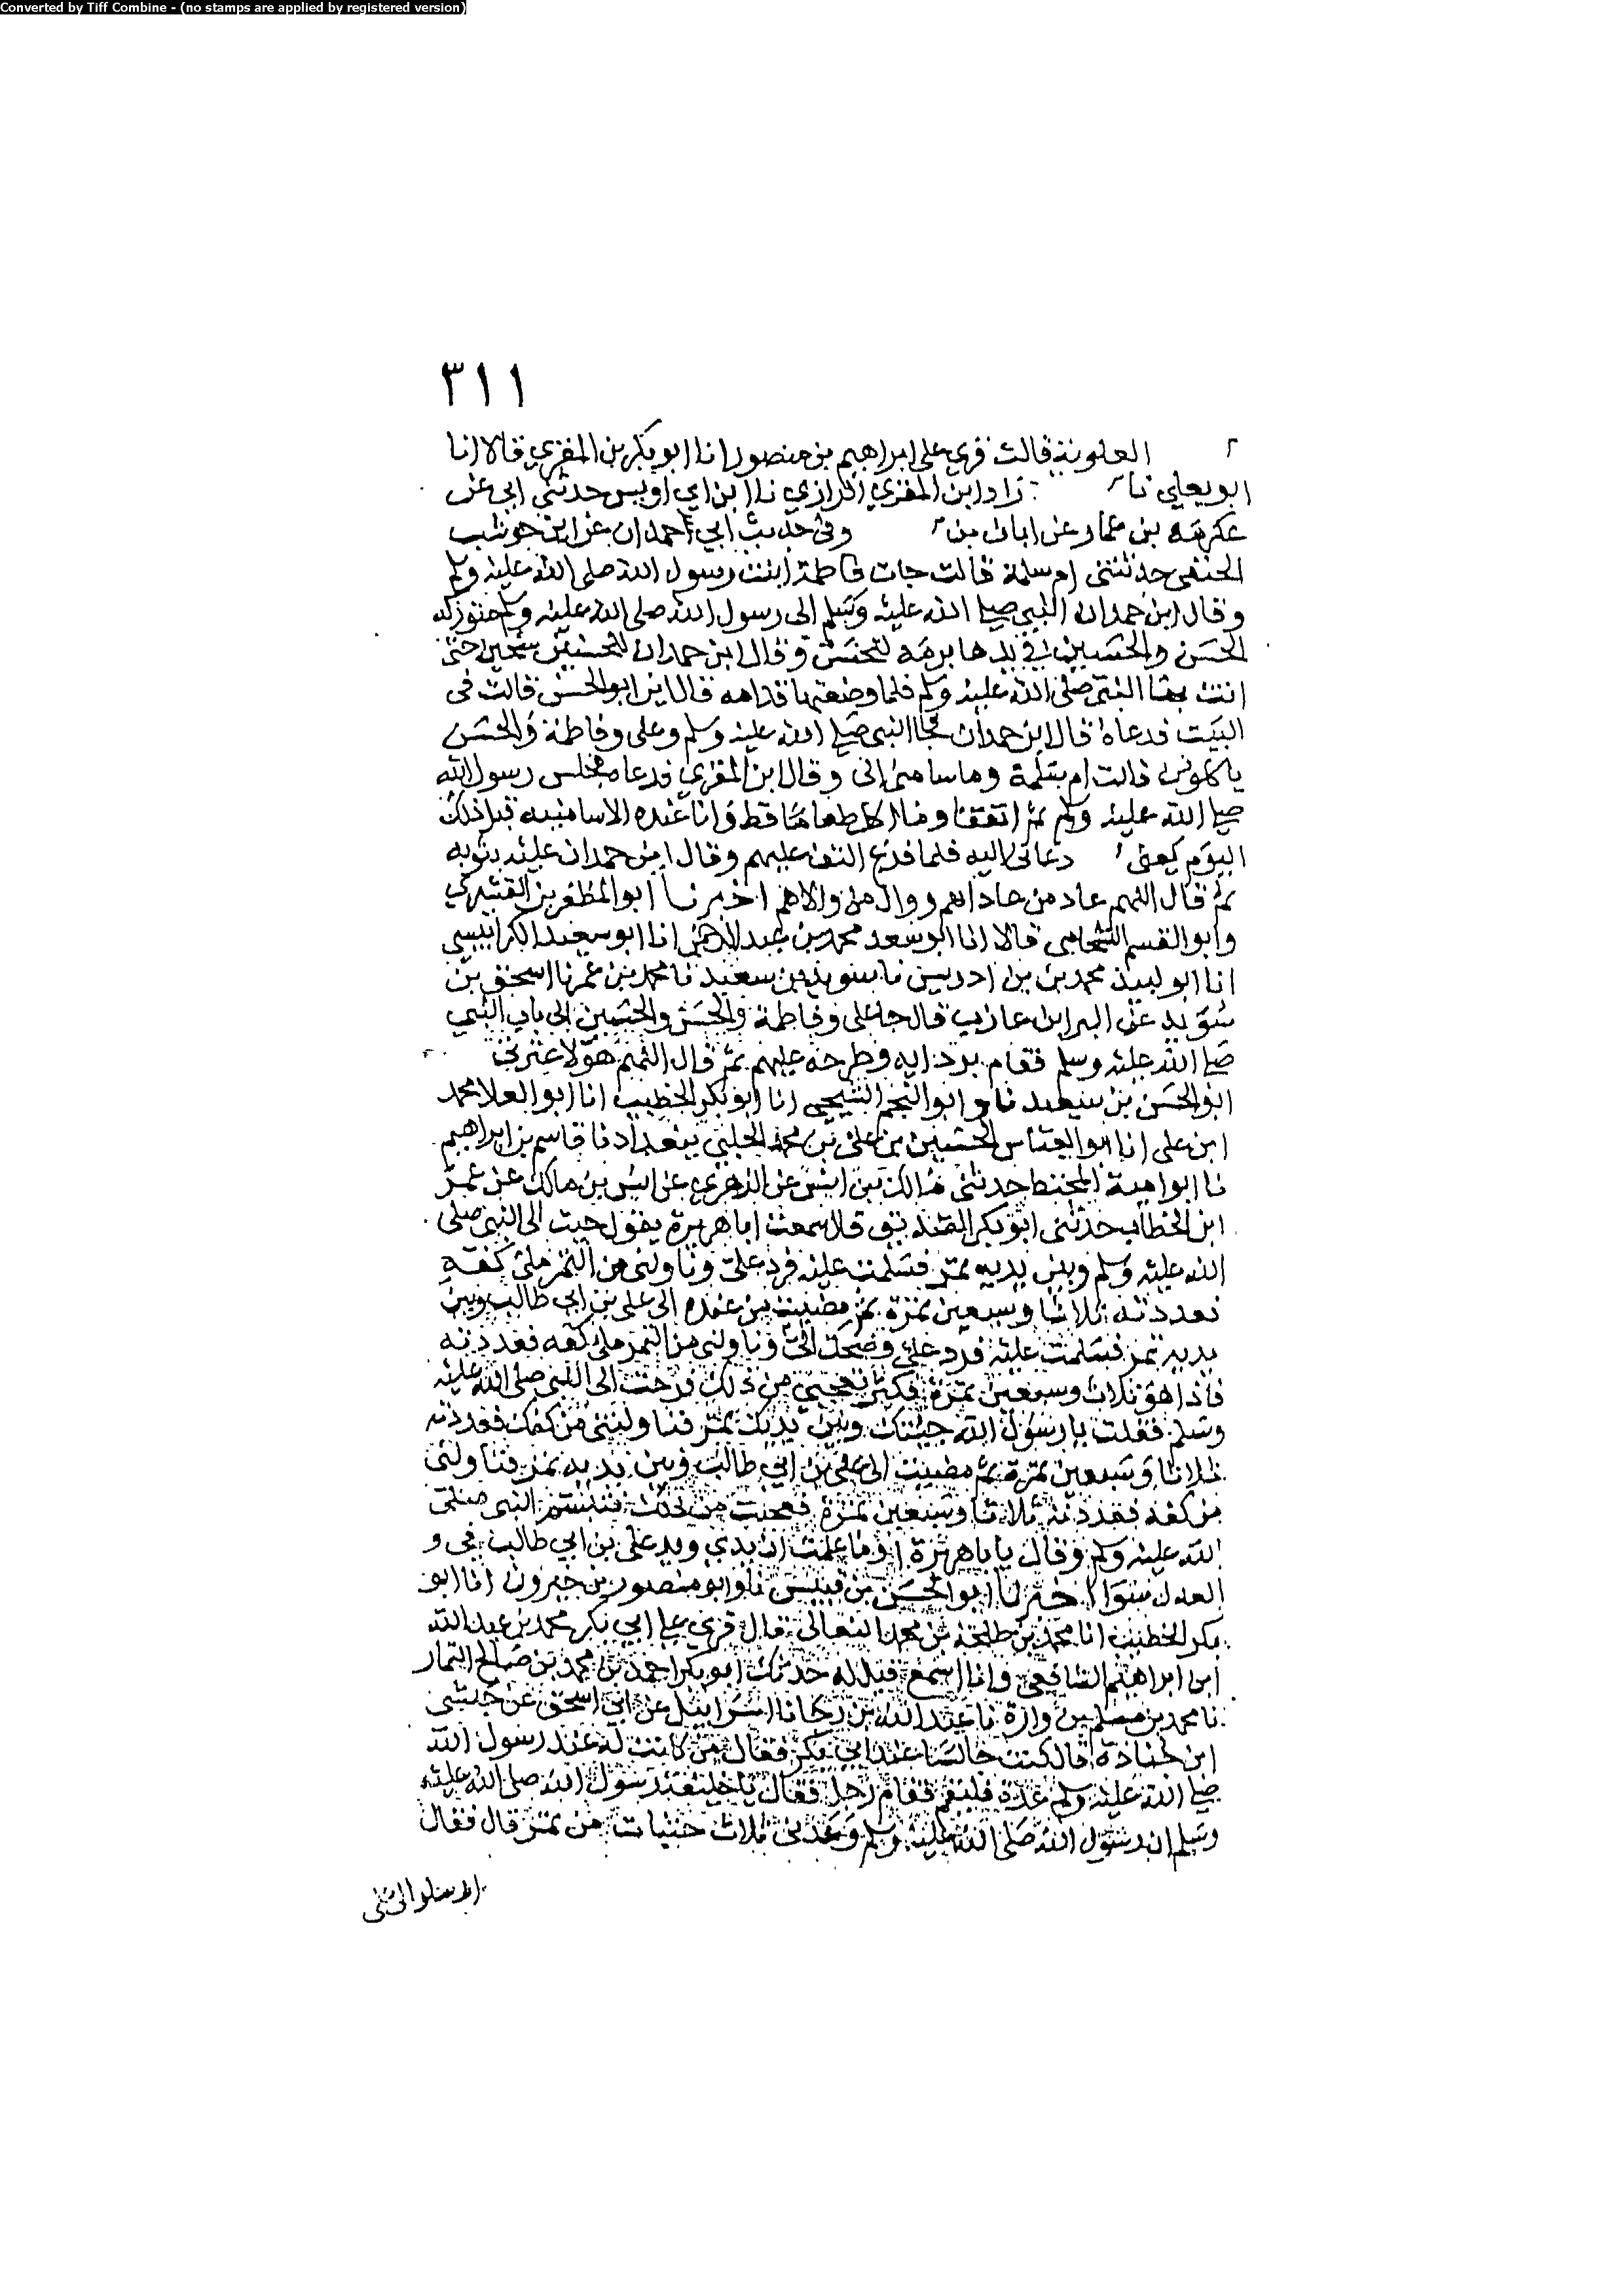 Converted by Tiff Combine - (no stamps are applied by registered version)
٣١١
العلوية قالت قرى على ابراهيم بن منصور انا ابو بكر بن المقري قالا انا
ابو يعلى نا زاد ابن المقري الرازي نا ابن ابي اويس حدثني ابي عن
عكرمه بن عمار عن ابان بن وفي حديث ابي احمدان عن ابن حوشب
الحنفى حدثتنى ام سلمة قالت جات فاطمة ابنت رسول الله صلى الله عليه وسلم
وقال ابن حمدان النبي صلى الله عليه وسلم الى رسول الله صلى الله عليه وسلم متوركه
الحسن والحسين في يدها برمه للحسن وقال ابن حمدان للحسين سخين حتى
اتت بها النبي صلى الله عليه وسلم فلما وضعتها قدامه قال اين ابو الحسن قالت فى
البيت فدعاه قال ابن حمدان فجا النبي صلى الله عليه وسلم وعلى وفاطمة والحسن
ياكلون قالت ام سلمة وما سامنى وقال ابن المقري فدعا فجلس رسول الله
صلى الله عليه وسلم ثم اتفقا وما اكل طعاما قط وانا عنده الا سامنيه قبل ذلك
اليوم يعنى دعانى اليه فلما فرغ التف عليهم وقال ابن حمدان عليه بثوبه
ثم قال اللهم عاد من عاداهم ووال من والاهم اخبرنا ابو المظفر بن القشيري
وابو القسم الشحامى قالا انا ابو سعد محمد بن عبد الرحمن انا ابو سعيد الكرابيسى
انا ابو لبيد محمد بن بن ادريس نا سويد بن سعيد نا محمد بن عمر نا اسحق بن
سويد عن البرا بن عازب قال جا على وفاطمة والحسن والحسين الى باب النبي
صلى الله عليه وسلم فقام بردايه وطرحه عليهم ثم قال اللهم هولا عترتي
ابو الحسن بن سعيد نا و ابو النجم الشيحي انا ابو بكر الخطيب انا ابو العلا محمد
ابن على انا ابو العباس الحسين بن على بن محمد الحلبي ببغداد نا قاسم بن ابراهيم
نا ابو امية المختط حدثني مالك بن انس عن الزهري عن انس بن مالك عن عمر
ابن الخطاب حدثني ابو بكر الصديق قال سمعت ابا هريرة يقول جيت الى النبي صلى
الله عليه وسلم وبين يديه تمر فسلمت عليه فرد على وناولنى من التمر ملئ كفه
فعددته ثلاثا وسبعين تمرة ثم مضيت من عنده الى على بن ابي طالب وبين
يديه تمر فسلمت عليه فرد على وضحك الى وناولنى من التمر ملئ كفه فعددته
فاذا هو ثلاث وسبعين تمرة فكثر تعجبي من ذلك فرحت الى النبي صلى الله عليه
وسلم فقلت يا رسول الله جيتك وبين يديك تمر فناولتني من كفك فعددته
ثلاثا وسبعين تمرة ثم مضيت الى على بن ابي طالب وبين يديه تمر فناولنى
من كفه فعددته ثلاثا وسبعين تمرة فعجبت من ذلك فتبسم النبي صلى
الله عليه وسلم وقال يا با هريرة او ما علمت ان يدي ويد على بن ابي طالب في و
العدل سوا اخبرنا ابو الحسن بن قبيس نا وابو منصور بن خيرون انا ابو
بكر الخطيب انا محمد بن طلحة بن محمد النعالى قال قرى على ابي بكر محمد بن عبد الله
ابن ابراهيم الشافعي وانا اسمع قيل له حدثك ابو بكر احمد بن محمد بن صالح التمار
نا محمد بن مسلم بن وارة نا عبد الله بن رجا نا اسرائيل عن ابي اسحق عن حبشى
ابن جنادة قال كنت جالسا عند ابي بكر فقال من كانت له عند رسول الله
صلى الله عليه وسلم عدة فليقم فقام رجل فقال يا خليفة رسول الله صلى الله عليه
وسلم ان رسول الله صلى الله عليه وسلم وعدنى ثلاث حثيات من تمر قال فقال
ارسلوا الى على